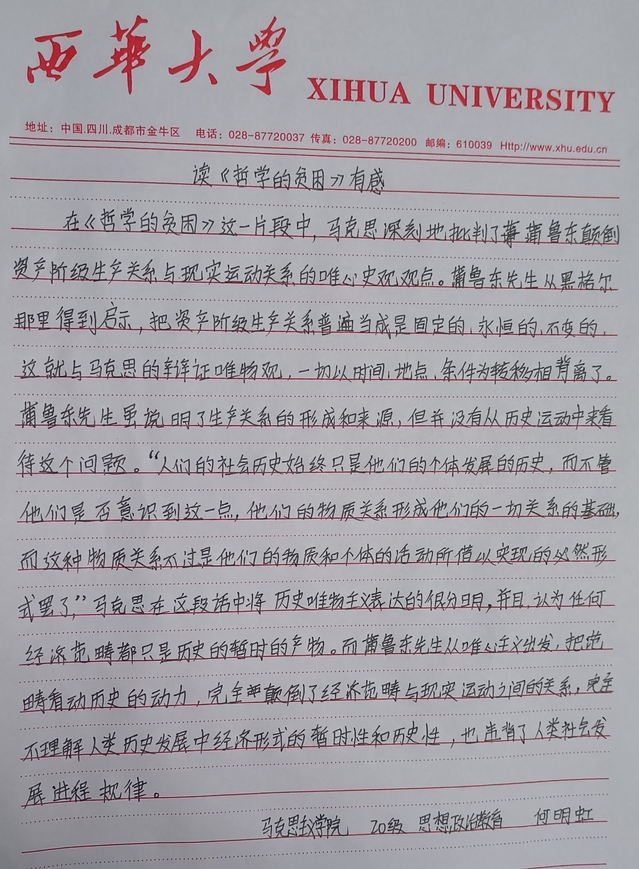 西華大學
XIHUA UNIVERSITY
地址：中国.四川.成都市金牛区 电话：028-87720037 传真：028-87720200 邮编：610039 Http://www.xhu.edu.cn
读《哲学的贫困》有感
在《哲学的贫困》这一片段中，马克思深刻地批判了蒲鲁东颠倒
资产阶级生产关系与现实运动关系的唯心史观观点。蒲鲁东先生从黑格尔
那里得到启示，把资产阶级生产关系普遍当成是固定的、永恒的、不变的，
这就与马克思的辩证唯物观，一切以时间、地点、条件为转移相背离了。
蒲鲁东先生虽说明了生产关系的形成和来源，但并没有从历史运动中来看
待这个问题。“人们的社会历史始终只是他们的个体发展的历史，而不管
他们是否意识到这一点，他们的物质关系形成他们的一切关系的基础，
而这种物质关系不过是他们的物质和个体的活动所借以实现的必然形
式罢了，”马克思在这段话中将历史唯物主义表达的很分明，并且认为任何
经济范畴都只是历史的暂时的产物。而蒲鲁东先生从唯心主义出发，把范
畴看动历史的动力，完全颠倒了经济范畴与现实运动之间的关系，完全
不理解人类历史发展中经济形式的暂时性和历史性，也违背了人类社会发
展进程规律。
马克思主义学院 20级 思想政治教育 何明虹